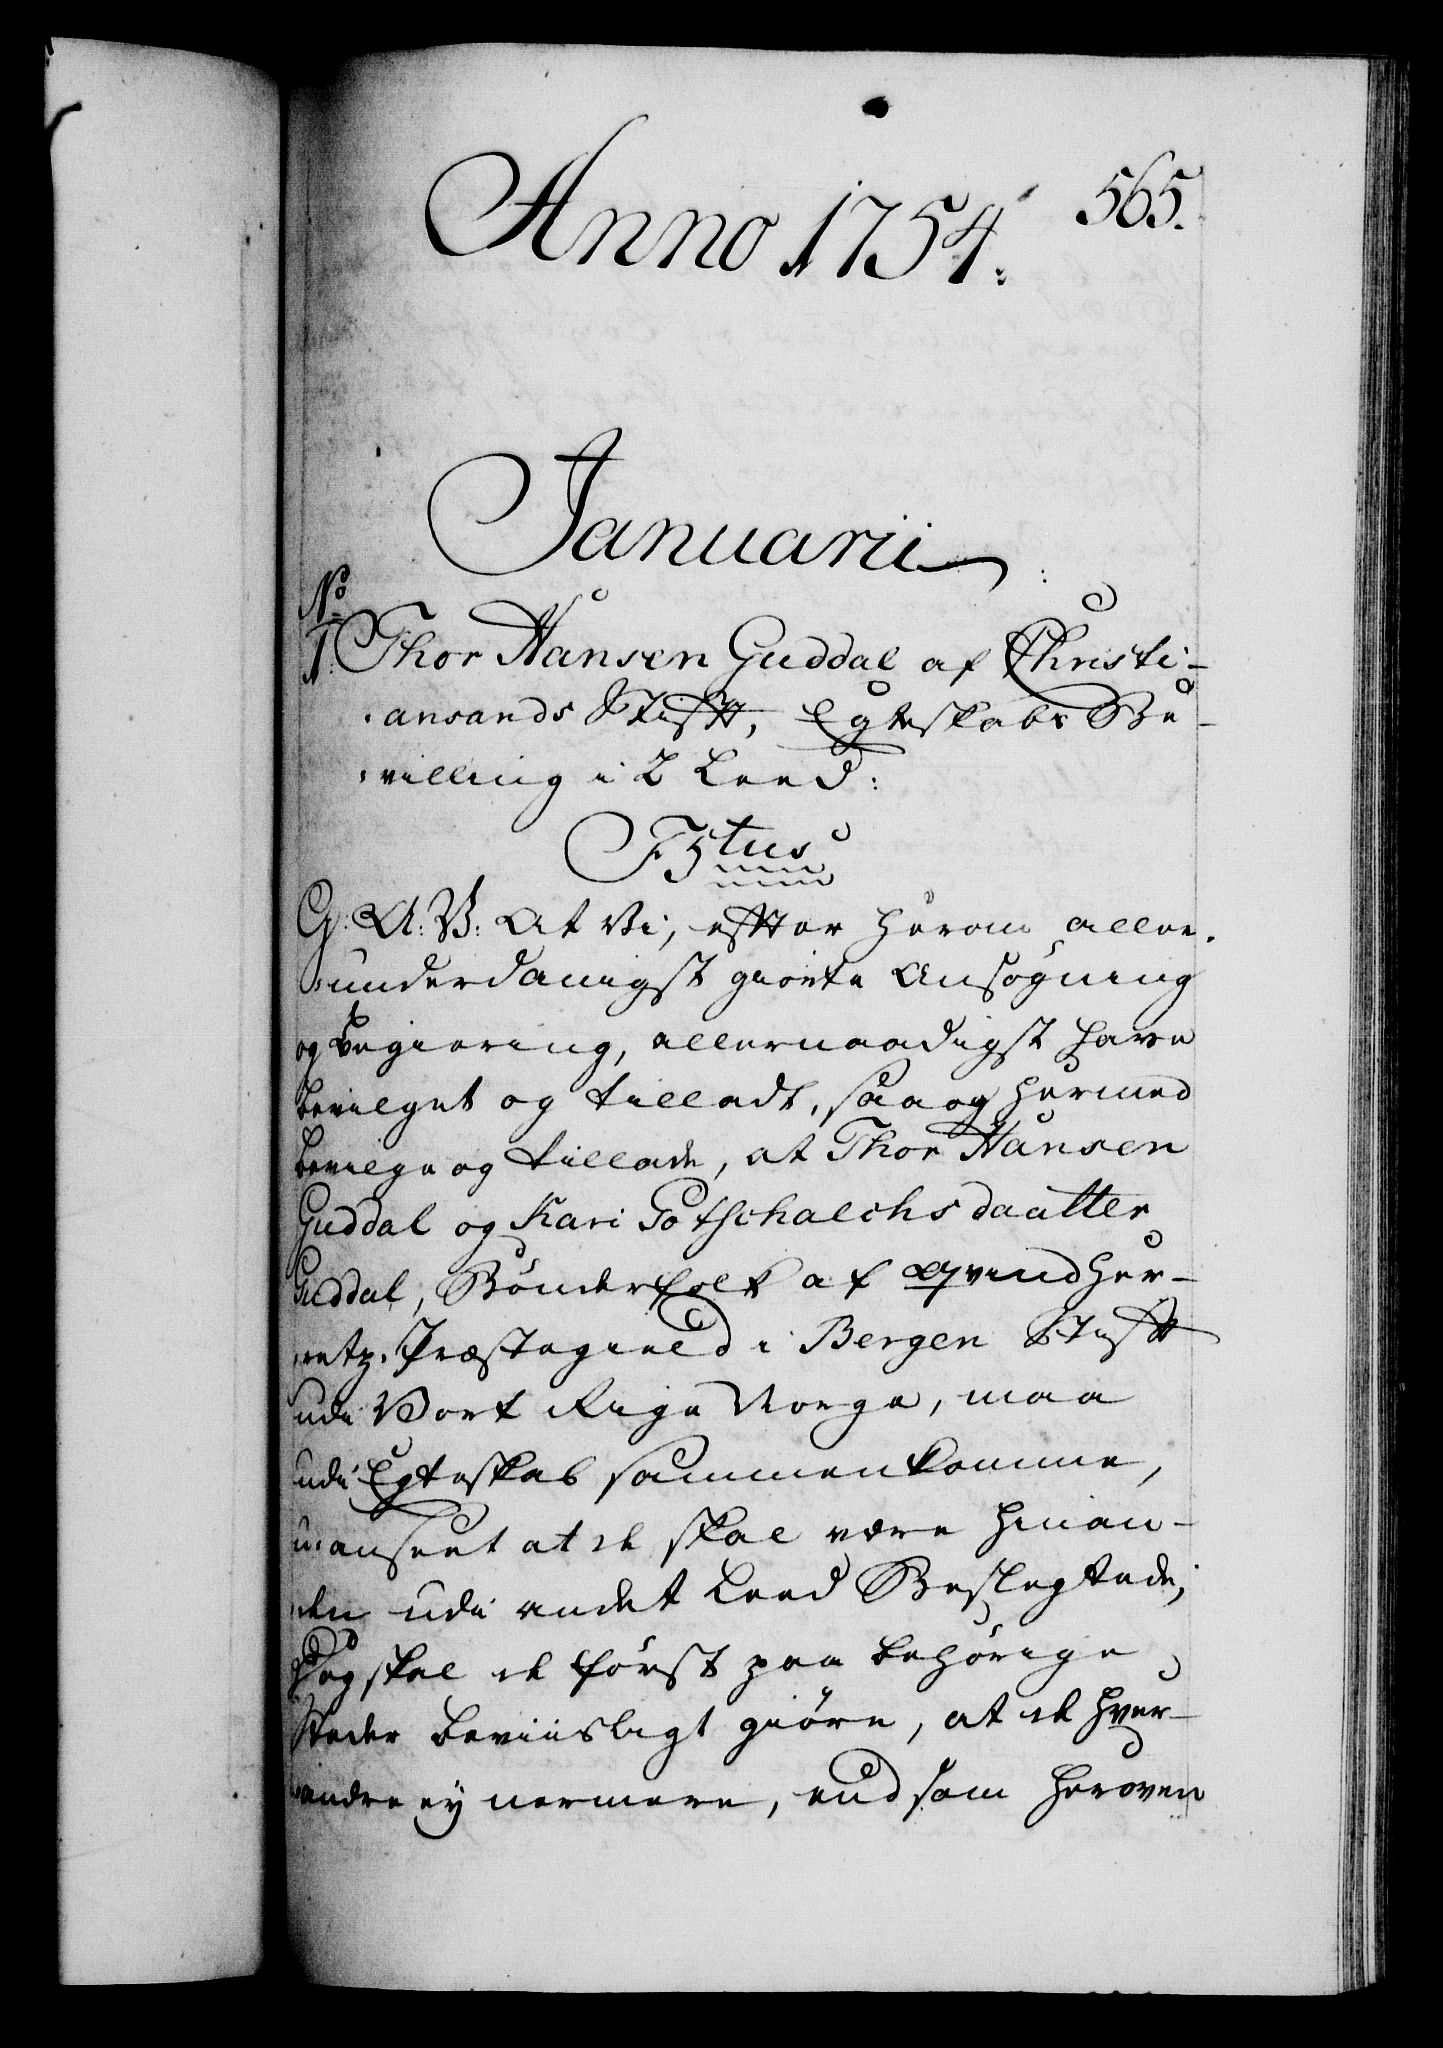 565.
Anno 1754.
Januarii
No
1. Thor Hansen Guddal af Christi-
ansands Stifft, Egteskabs Be-
villing i 2 Leed:
F5tus
G: A: V: At Vi, effter herom aller-
underdanigst giorte Ansøgning
og Begiering, allernaadigst have
bevilget og tilladt, saa og hermed
bevilge og tillade, at Thor Hansen
Guddal og Kari Gotschalchsdaatter
Guddal, Bønderfolk af Qvindher-
retz Præstegield i Bergen Stifft
udi Vort Rige Norge, maa
udi Egteskab sammenkomme,
uanseet at de skal være hinan-
den udi andet Leed Beslegtede;
Dog skal de først paa behørige
Steder beviisligt giøre, at de hver-
andre ey nermere, end som heroven